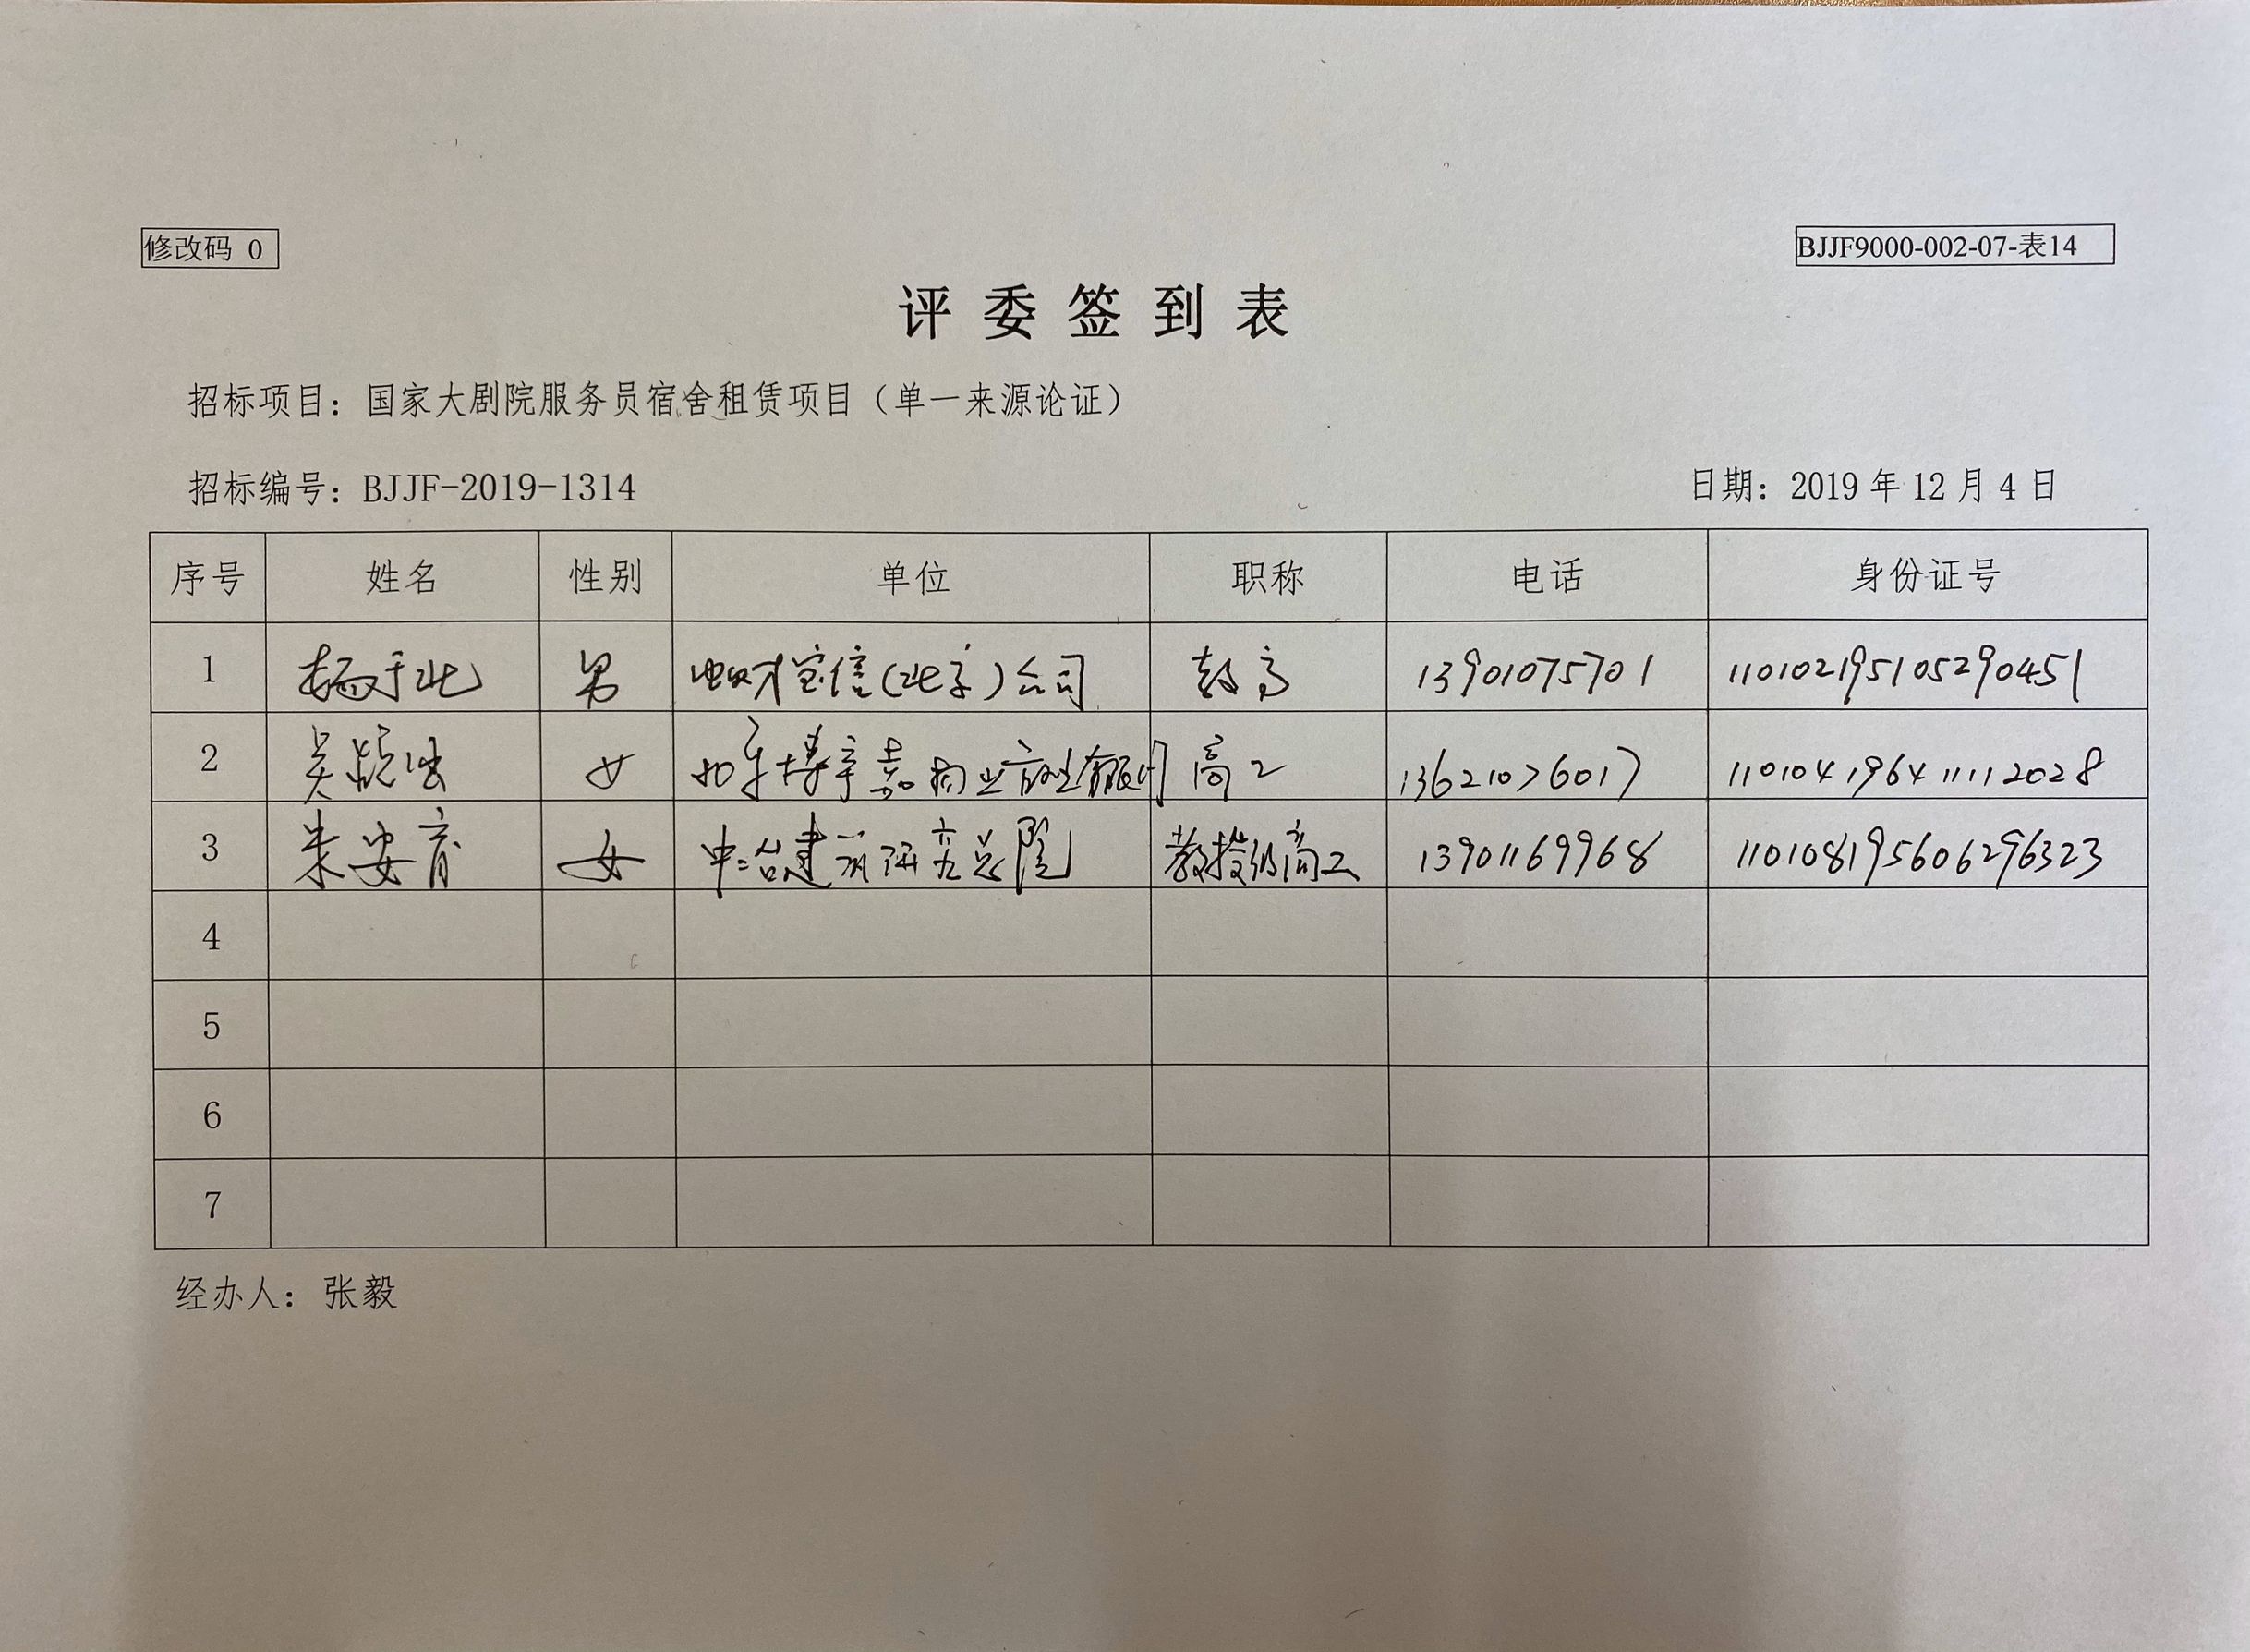 修改码 0
BJJF9000-002-07-表14
评委签到表
招标项目：国家大剧院服务员宿舍租赁项目（单一来源论证）
招标编号：BJJF-2019-1314 日期：2019 年 12 月 4 日
序号 姓名 性别 单位 职称 电话 身份证号
1 杨于北 男 中财宝信(北京)公司 教高 13901075701 110102195105290451
2 吴 女 高工 13621076017 110104196411112028
3 朱安育 女 中冶建筑研究总院 教授级高工 13901169968 110108195606296323
4
5
6
7
经办人：张毅